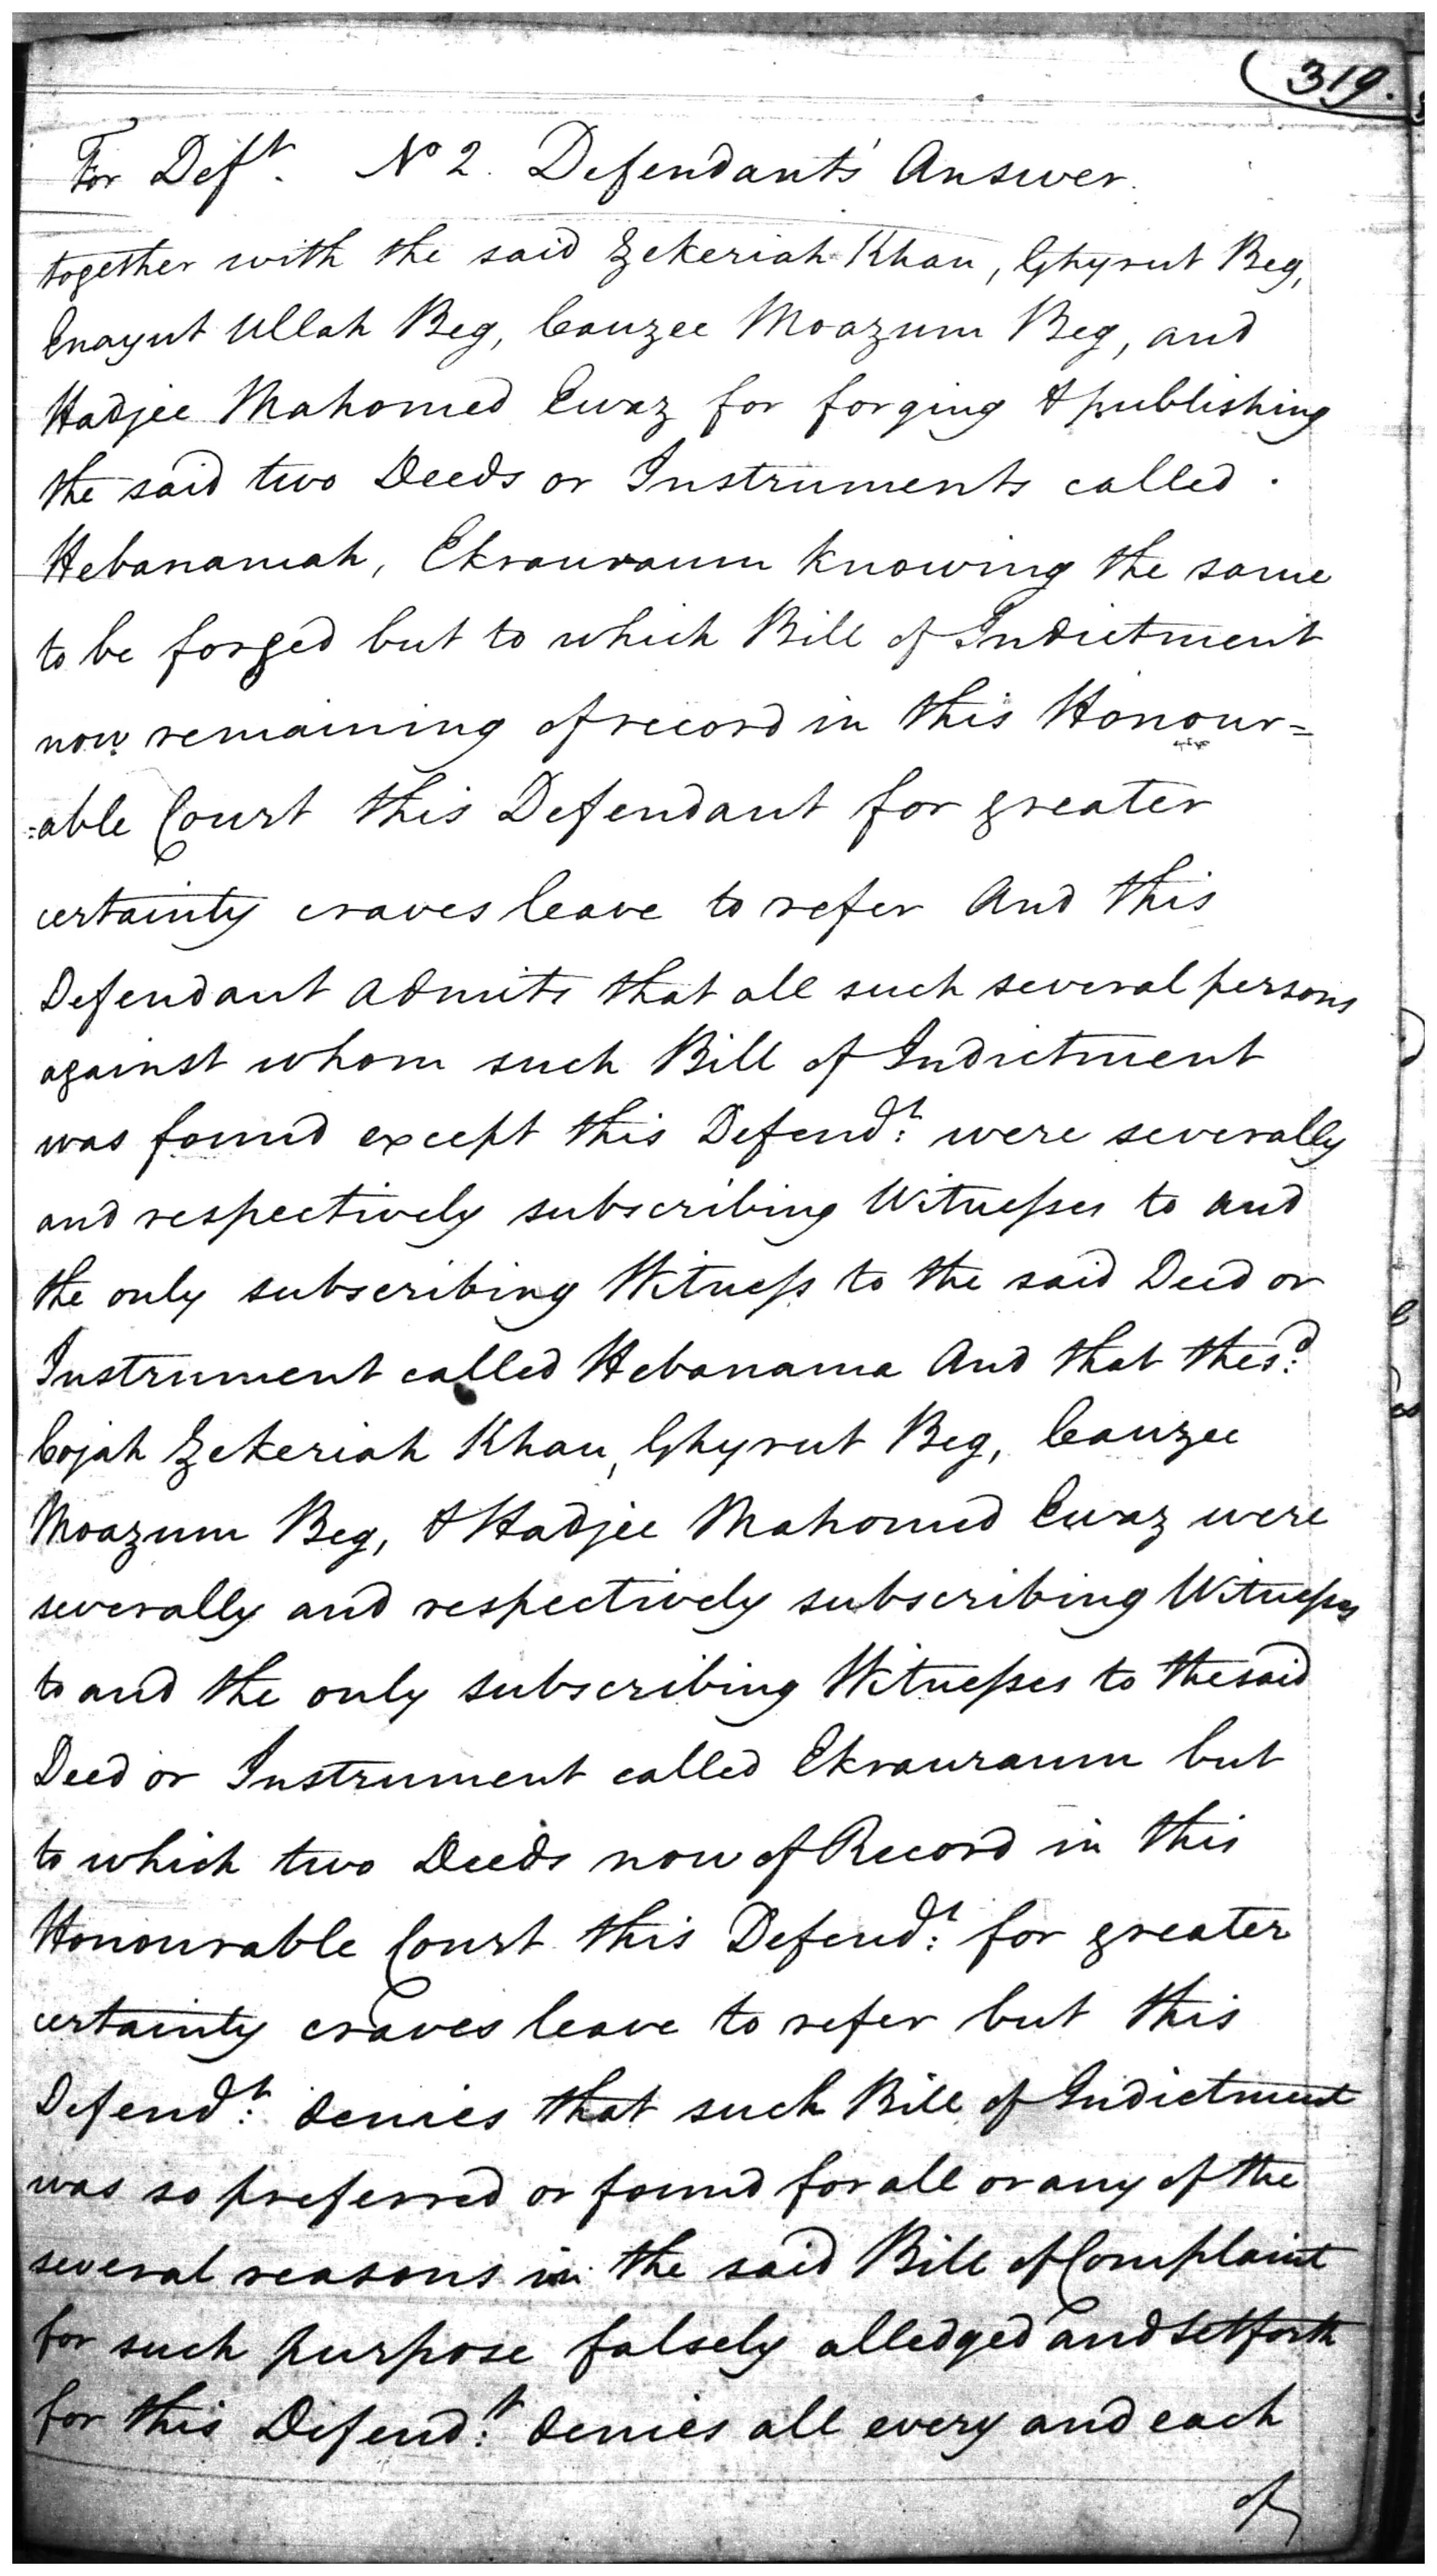 319.
For Deft. No 2. Defendant's Answer.
together with the said Zekeriah Khan, Ghyrut Beg,
Enayut Ullah Beg, Cauzee Moazum Beg, and
Hadjee Mahomed Ewaz for forging & publishing
the said two Deeds or Instruments called
Hebanamah, Ekrauraum knowing the same
to be forged but to which Bill of Indictment
now remaining of record in this Honour=
=able Court this Defendant for greater
certainty craves leave to refer And this
Defendant admits that all such several persons
against whom such Bill of Indictment
was found except this Defendt: were severally
and respectively subscribing Witnesses to and
the only subscribing Witness to the said Deed or
Instrument called Hebanama And that the sd:
Cojah Zekeriah Khan, Ghyrut Beg, Cauzee
Moazum Beg, & Hadjee Mahomed Ewaz were
severally and respectively subscribing Witnesses
to and the only subscribing Witnesses to the said
Deed or Instrument called Ekrauraum but
to which two Deeds now of Record in this
Honourable Court this Defendt: for greater
certainty craves leave to refer but this
Defendt: denies that such Bill of Indictment
was so preferred or found for all or any of the
several reasons in the said Bill of Complaint
for such purpose falsely alledged and set forth
for this Defendt: denies all every and each
of